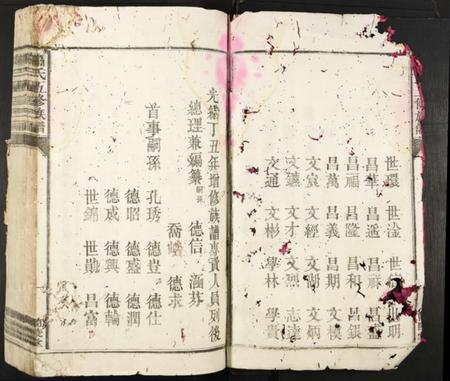 修族譜
世環 世淦 世 明
昌華 昌遙 昌 昌
昌福 昌隆 昌和 昌銀
昌萬 昌義 昌期 文模
文袞 文經 文 文炳
文 文才 文烈 志逵
文通 文彬 學林 學貴
光緒丁丑年增修族譜專責人員列後
總理兼編纂嗣孫 德信 涵芬
喬 德求
首事嗣孫 孔琇 德豈 德仕
德昭 德盛 德潤
德成 德興 德輪
世錦 世勛 昌富
氏五修族譜